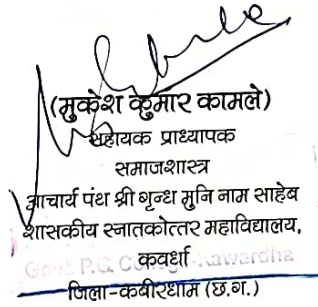 (मुकेश कुमार कामले)
सहायक प्राध्यापक
समाजशास्त्र
आचार्य पंथ श्री गृन्ध मुनि नाम साहेब
शासकीय स्नातकोत्तर महाविद्यालय,
कवर्धा
Govt. P.G. College Kawardha
जिला-कबीरधाम (छ.ग.)